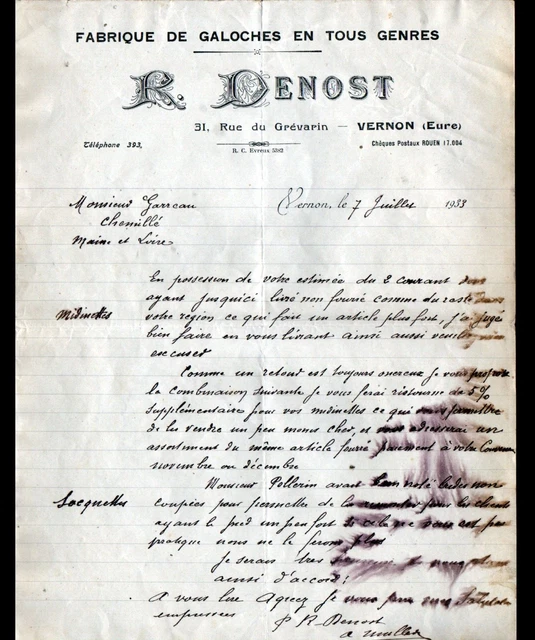 FABRIQUE DE GALOCHES EN TOUS GENRES
R. DENOST
31, Rue du Grévarin — VERNON (Eure)
Téléphone 393,
R. C. Evreux
Chèques Postaux ROUEN 17.804
Monsieur Garreau
Vernon, le 7 Juillet 1933
Chemillé
Maine et Loire
En possession de votre estimée du 2 courant
ayant jusqu'ici livré non fourré comme du reste dans
Midinettes
votre région ce qui fait un article plus fort, j'ai jugé
bien faire en vous livrant ainsi aussi
excuser
Comme un retour est toujours onereux je vous propose
la combinaison suivante je vous ferai ristourne de 5%
supplémentaire pour vos midinettes ce qui vous permettre
de la vendre un peu moins cher, et vous adresserai un
assortiment du même article fourré à votre
novembre ou décembre
Monsieur Pellerin avait bien noté
Socquettes
coupées pour semelles de la pour les clients
ayant le pied un peu fort si cela ne vous est pas
pratique nous ne le ferons plus
Je serais très
ainsi d'accord!
A vous lire Agréez je vous prie mes
empressées
R. Denost